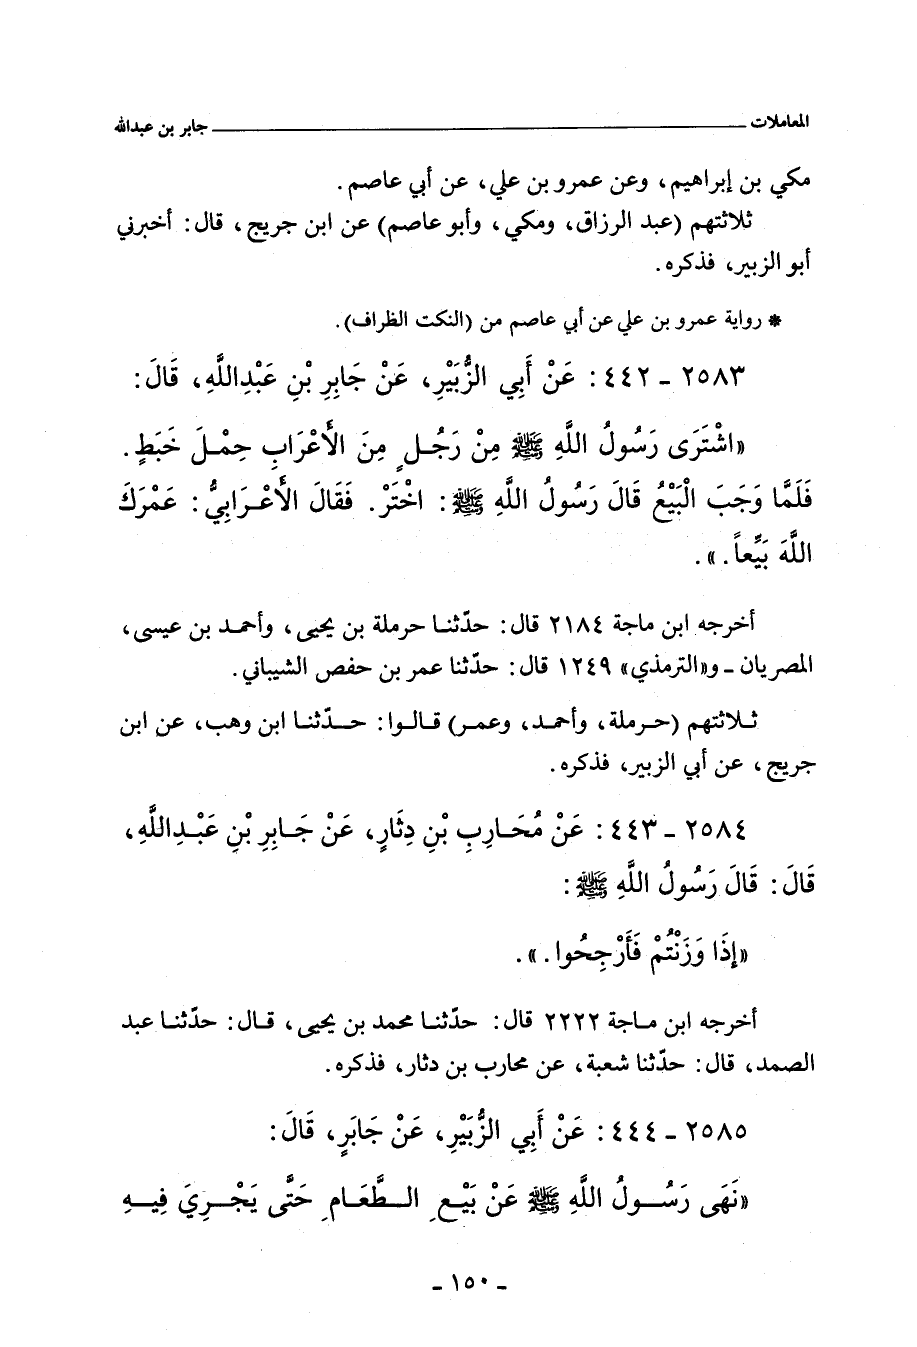 المعاملات ــــــــــ جابر بن عبدالله
مكي بن إبراهيم، وعن عمرو بن علي، عن أبي عاصم.
ثلاثتهم (عبد الرزاق، ومكي، وأبو عاصم) عن ابن جريج، قال: أخبرني
أبو الزبير، فذكره.
* رواية عمرو بن علي عن أبي عاصم من (النكت الظراف).
٢٥٨٣ ـ ٤٤٢: عَنْ أَبِي الزُّبَيْرِ، عَنْ جَابِرِ بْنِ عَبْدِاللَّهِ، قَالَ:
«اشْتَرَى رَسُولُ اللَّهِ ﷺ مِنْ رَجُلٍ مِنَ الأَعْرَابِ حِمْلَ خَبَطٍ.
فَلَمَّا وَجَبَ الْبَيْعُ قَالَ رَسُولُ اللَّهِ ﷺ: اخْتَرْ. فَقَالَ الأَعْرَابِيُّ: عَمْرَكَ
اللَّهَ بَيِّعاً.».
أخرجه ابن ماجة ٢١٨٤ قال: حدّثنا حرملة بن يحيى، وأحمد بن عيسى،
المصريان ـ و«الترمذي» ١٢٤٩ قال: حدّثنا عمر بن حفص الشيباني.
ثلاثتهم (حرملة، وأحمد، وعمر) قالوا: حدّثنا ابن وهب، عن ابن
جريج، عن أبي الزبير، فذكره.
٢٥٨٤ ـ ٤٤٣: عَنْ مُحَارِبِ بْنِ دِثَارٍ، عَنْ جَابِرِ بْنِ عَبْدِاللَّهِ،
قَالَ: قَالَ رَسُولُ اللَّهِ ﷺ:
«إِذَا وَزَنْتُمْ فَأَرْجِحُوا.».
أخرجه ابن ماجة ٢٢٢٢ قال: حدّثنا محمد بن يحيى، قال: حدّثنا عبد
الصمد، قال: حدّثنا شعبة، عن محارب بن دثار، فذكره.
٢٥٨٥ ـ ٤٤٤: عَنْ أَبِي الزُّبَيْرِ، عَنْ جَابِرٍ، قَالَ:
«نَهَى رَسُولُ اللَّهِ ﷺ عَنْ بَيْعِ الطَّعَامِ حَتَّى يَجْرِيَ فِيهِ
ـ ١٥٠ ـ